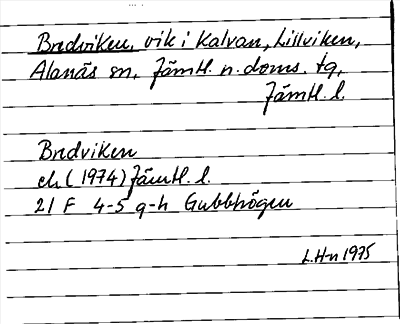 Bredviken, vik i Kalvan, Lillviken,
Alanäs sn, Jämtl. n. doms. tg,
Jämtl. l.
Bredviken
ek (1974) Jämtl. l.
21 F 4-5 g-h Gubbhögen
L.H-n 1975